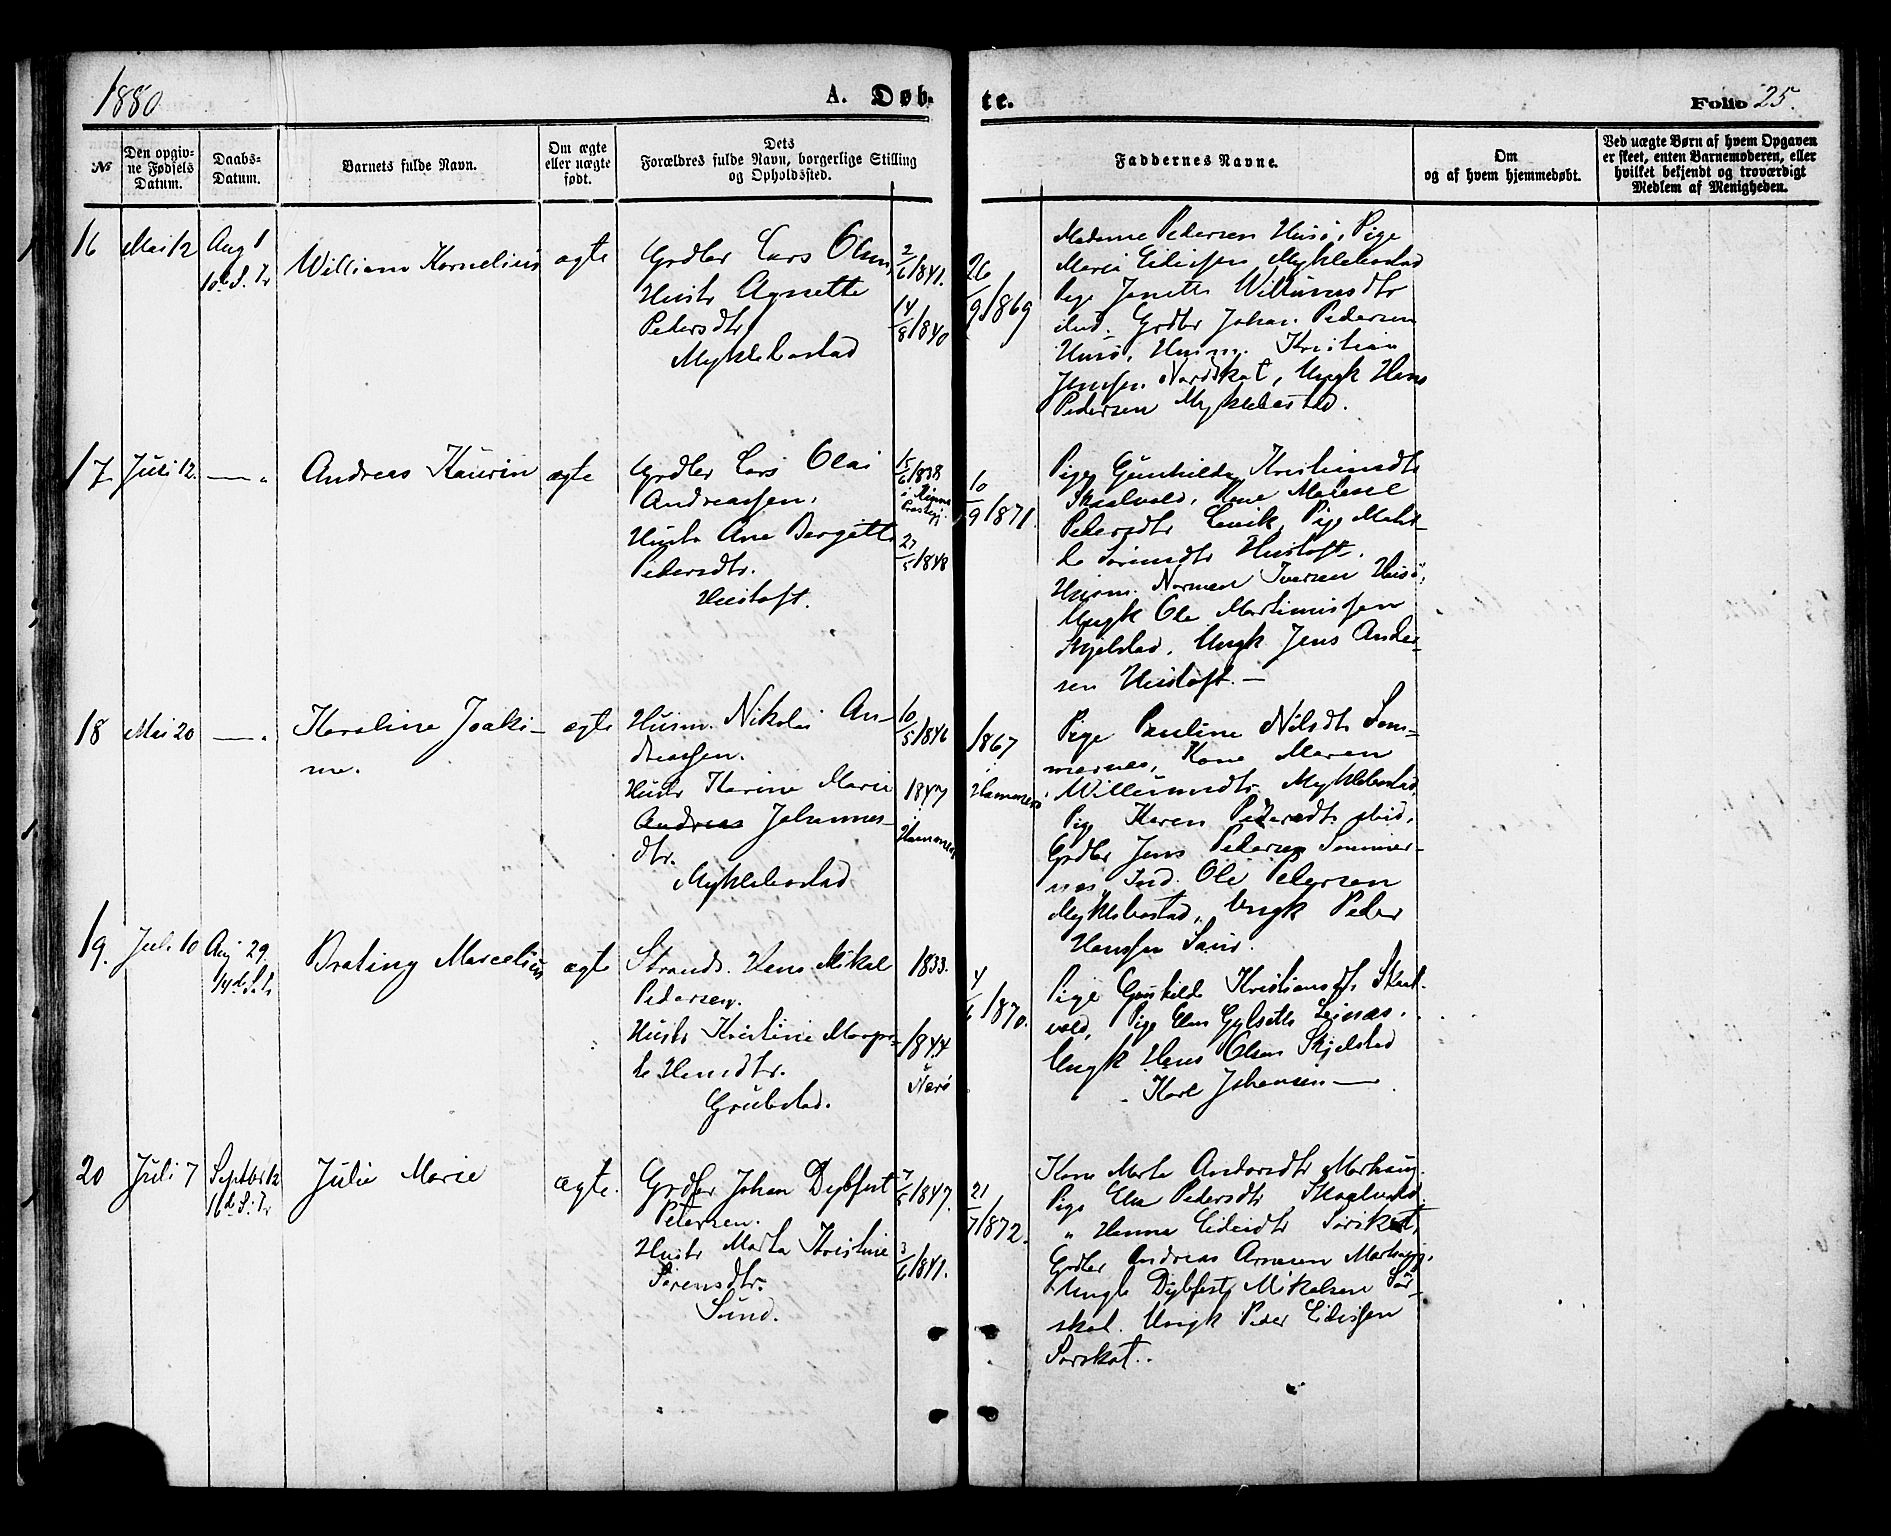 1880
A. Døb-
te.
Folio 25.
№
Den opgiv-
ne Fødsels
Datum.
Daabs-
Datum.
Barnets fulde Navn.
Om ægte
eller uægte
født.
Dets
Forældres fulde Navn, borgerlige Stilling
og Opholdssted.
Faddernes Navne.
Om
og af hvem hjemmedøbt.
Ved uægte Børn af hvem Opgaven
er skeet, enten Barnemoderen, eller
hvilket bekjendt og troværdigt
Medlem af Menigheden.
16
Mai 12
Aug 1
10de S. Tr
William Kornelius
ægte
Grdbr Lars Olsen,
Hustr Agnette
Pedersdtr
Myklebostad
2/6 1841.
14/8 1840
26/9 1869
Madame Pedersen Husö, Pige
Maria Eidissen Myklebostad
Pige Janette Willumsdtr
ibid. Grdbr Johan Pedersen
Husö, Husm. Kristian
Jenssen Nordskot, Ungk Hans
Pedersen Myklebostad.
17
Juli 12.
— "
Andreas Kaurin
ægte
Grdbr Lars Olai
Andreassen,
Hustr Ane Bergitte
Pedersdtr.
Hustoft.
15/6 1838
27/5 1848
10/9 1871.
Pige Gunhilda Kristiansdtr
Skaalvold, Kone
Pedersdtr Levik, Pige
Hustoft.
Husm. Normen Iversen Husö,
Ungk Ole Martinussen
Skjelstad, Ungk Jens Ander-
sen Hustoft. —
18
Mai 20
— "
Karoline Joaki-
me.
ægte
Husm. Nikolai An-
dreassen.
Hustr Karine Marie
Andreas Johannes-
dtr.
Myklebostad
10/5 1846
1847
i
Hammerø
1867
i
Hammerø
Pige Pauline Nilsdtr Som-
mernes, Kone Maren
Willumsdtr Myklebostad
Pige Karen Pedersdtr ibid,
Grdbr Jens Pedersen Sommer-
nes, Ind. Ole Pedersen
Myklebostad, Ungk Peder
Hanssen Sund.
19.
Juli 10
Aug 29.
14de S. Tr
Brating Marcelius
ægte
Strands. Hans Mikal
Pedersen.
Hustr Kristine Margre-
te Hansdtr.
Grubstad.
1833.
1844
i
Nærö
4/6 1870.
Pige Gunhilde Kristiansdtr Skaal-
vold, Pige Elen Gylseth Leinæs.
Ungk Hans Olsen Skjelstad
" Karl Johansen —
20
Juli 7
Septbr 12
16de S. Tr
Julie Marie
ægte.
Grdbr Johan Dybfest
Petersen.
Hustr Marta Kristine
Sörensdtr.
Sund.
7/5 1847.
3/6 1841.
21/7 1872.
Kone Marta Andersdtr Marhaug.
Pige Elen Pedersdtr Skaalvold.
" Hanna Eidisdtr Sörskot,
Grdbr Andreas Arnesen Marhaug.
Ungk Dybfest Mikelsen Sör-
skot. Ungk Peder Eidissen
Sörskot.